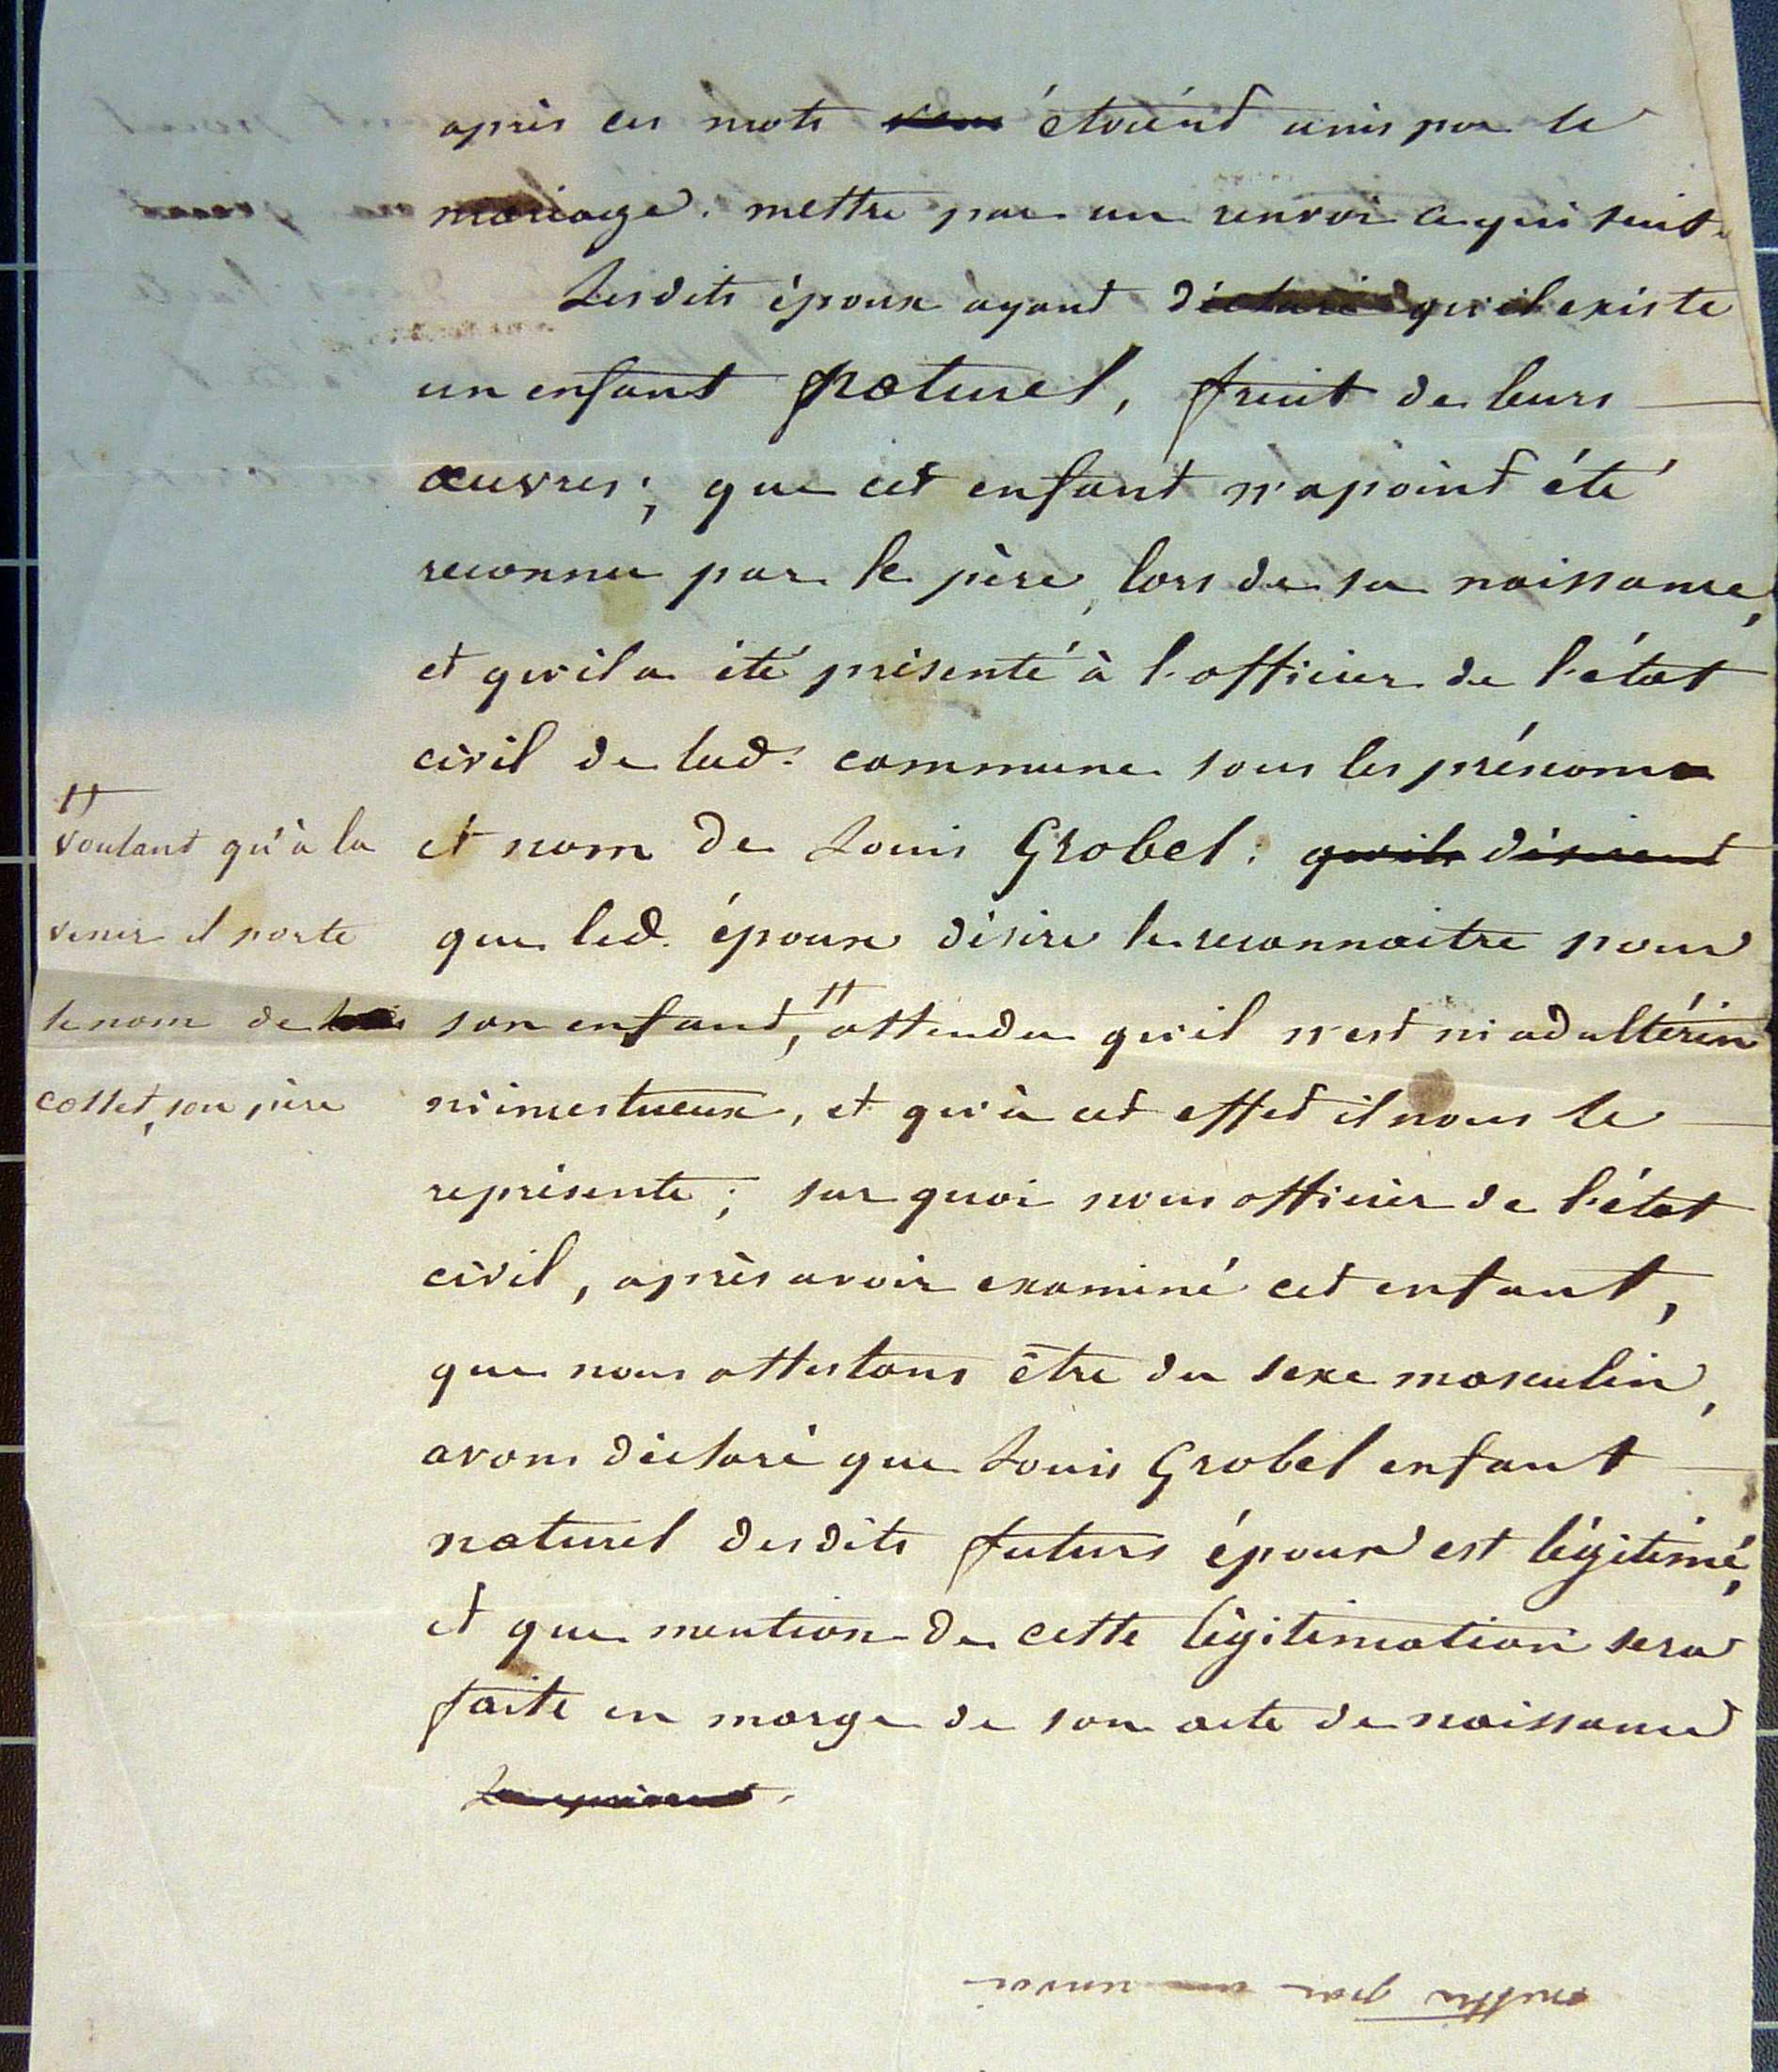 après ces mots étoiént unis par le
mariage. mettre par un renvoi ce qui suit.
Lesdits époux ayant déclaré qu'il existe
un enfant naturel, fruit de leurs
œuvres; que cet enfant n'a point été
reconnu par le père, lors de sa naissance,
et qu'il a été présenté à l'officier de l'état
civil de lad. commune sous les prénoms
et nom de Louis Grobel: qu'ils désirent
que led. époux désire le reconnaitre pour
son enfant, # attendu qu'il n'est ni adultérin
ni incestueux, et qu'à cet effet il nous le
représente; sur quoi nous officier de l'état
civil, après avoir examiné cet enfant,
que nous attestons être du sexe masculin,
avons déclaré que Louis Grobel enfant
naturel desdits futurs époux est légitimé,
et que mention de cette légitimation sera
faite en marge de son acte de naissance
#
voulant qu'à la
venir il porte
le nom de
collet, son père
mettre par un renvoi